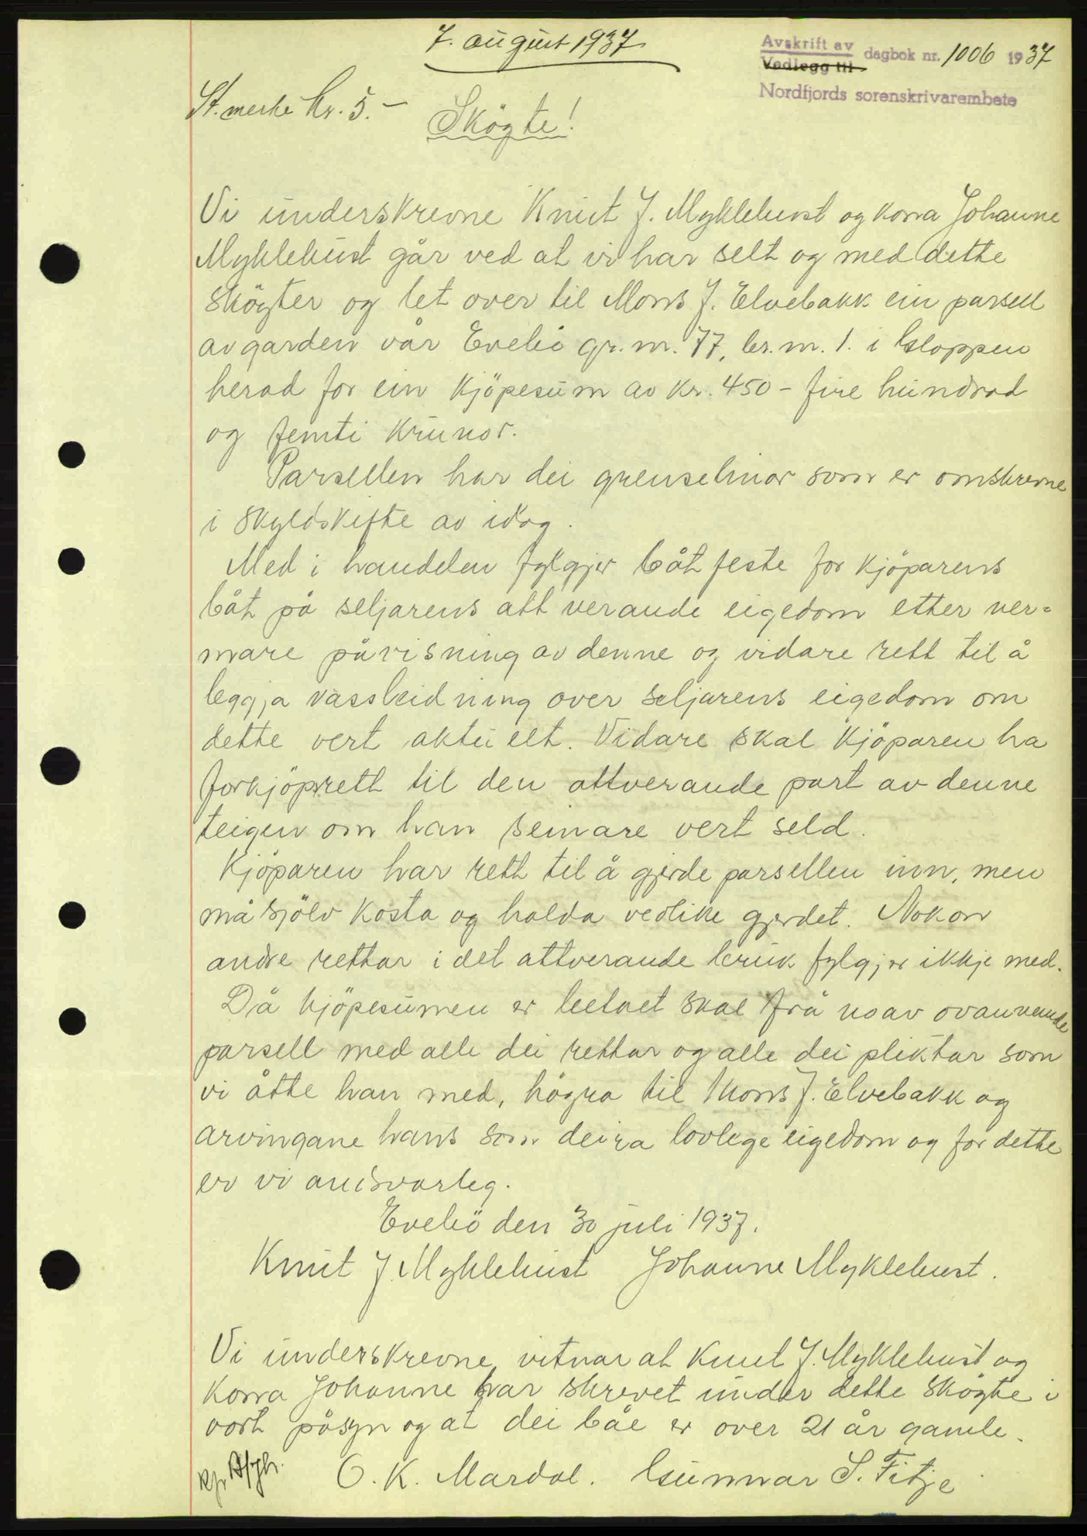 7. august 1937
Avskrift av
Vedlegg til dagbok nr. 1006 1937
Nordfjords sorenskrivarembete
St. merke kr. 5.-
Skögte!
Vi underskrevne Knut J. Myklebust og kona Johanne
Myklebust går ved at vi har selt og med dette
skögter og let over til Mons J. Elvebakk ein parsell
av garden vår Evebö gr. nr. 77, br. nr. 1. i Gloppen
herad for ein kjöpesum av kr. 450 - fire hundrad
og femti krunor.
Parsellen har dei grenselinor som er omskrevne
i skyldskifte av idag.
Med i handelen fylgjer båtfeste for kjöparens
båt på seljarens attverande eigedom etter ner=
mare påvisning av denne og vidare rett til å
leggja vassleidning over seljarens eigedom om
dette vert aktuelt. Vidare skal kjöparen ha
forkjöpsrett til den attverande part av denne
teigen om han seinare vert seld.
Kjöparen har rett til å gjerde parsellen inn, men
må sjölv kosta og halda vedlike gjerdet. Nokon
andre rettar i det attverande bruk fylgjer ikkje med.
Då kjöpesumen er betalt skal frå no av ovannemnde
parsell med alle dei rettar og alle dei pliktar som
vi åtte han med, högra til Mons J. Elvebakk og
arvingane hans som deira lovlege eigedom og for dette
er vi andsvarleg.
Evebö den 30 juli 1937.
Knut J. Myklebust Johanne Myklebust.
Vi underskrevne vitnar at Knut J. Myklebust og
kona Johanne har skrevet under dette skögte i
vort påsyn og at dei båe er over 21 år gamle.
O. K. Mardal. Gunnar S. Fitje